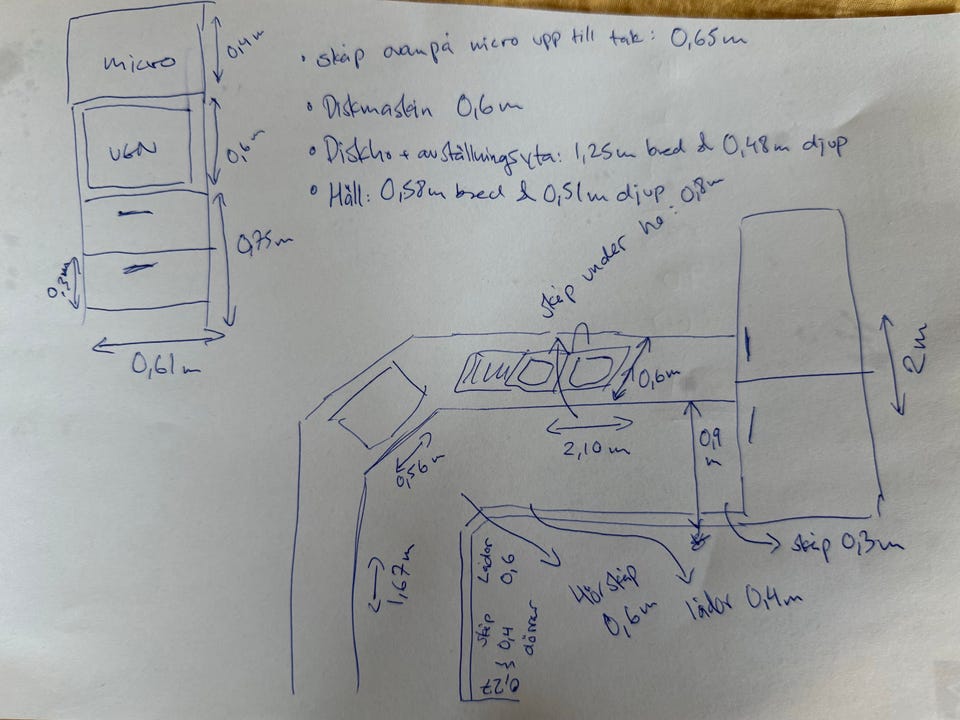 micro
0,4m
UGN
0,6m
0,75m
0,3m
0,61m
• skåp ovanpå micro upp till tak: 0,65m
• Diskmaskin 0,6m
• Diskho + avställningsyta: 1,25m bred & 0,48m djup
• Häll: 0,58m bred & 0,51m djup
skåp under ho: 0,8m
0,6m
2,10m
0,56m
0,9
m
2m
1,67m
skåp 0,3m
lådor 0,4m
Hörskåp
0,6m
Lådor
0,6
skåp
0,4
dörrar
0,27